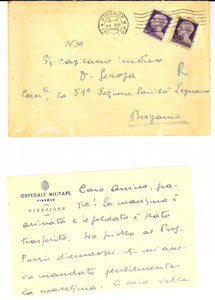 FIRENZE
N.H.
Sig. Capitano medico
D. Gerosa
R
Com. la 51ª Sezione Sanità Legnano
Bergamo
OSPEDALE MILITARE
FIRENZE
DIREZIONE
Caro amico, gra-
zie! La macchina è
arrivata e il soldato è stato
trasferito. Ho scritto al Prof.
Parri dicendogli di
mandato gentilmente
la macchina. A mia volta